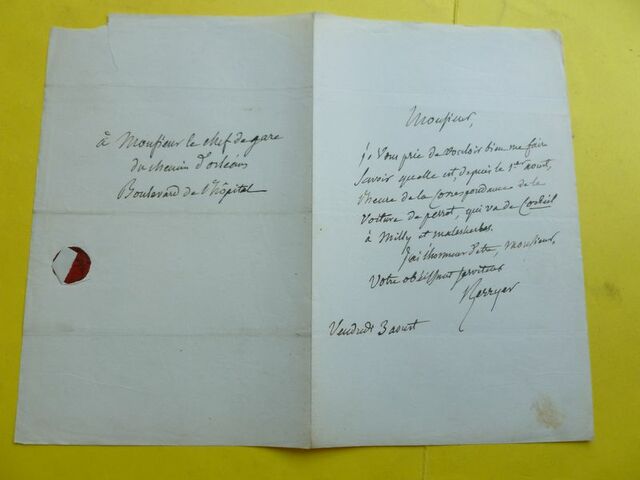 à Monsieur le chef de gare
du chemin d'orléans
Boulevard de l'hôpital
Monsieur,
je vous prie de vouloir bien me faire
savoir quelle est, depuis le 1er aout,
l'heure de la Correspondance de la
voiture de perrot, qui va de Corbeil
à Milly et malesherbes.
J'ai l'honneur d'etre, monsieur,
votre obéissant serviteur
Berryer
Vendredi 3 aoust